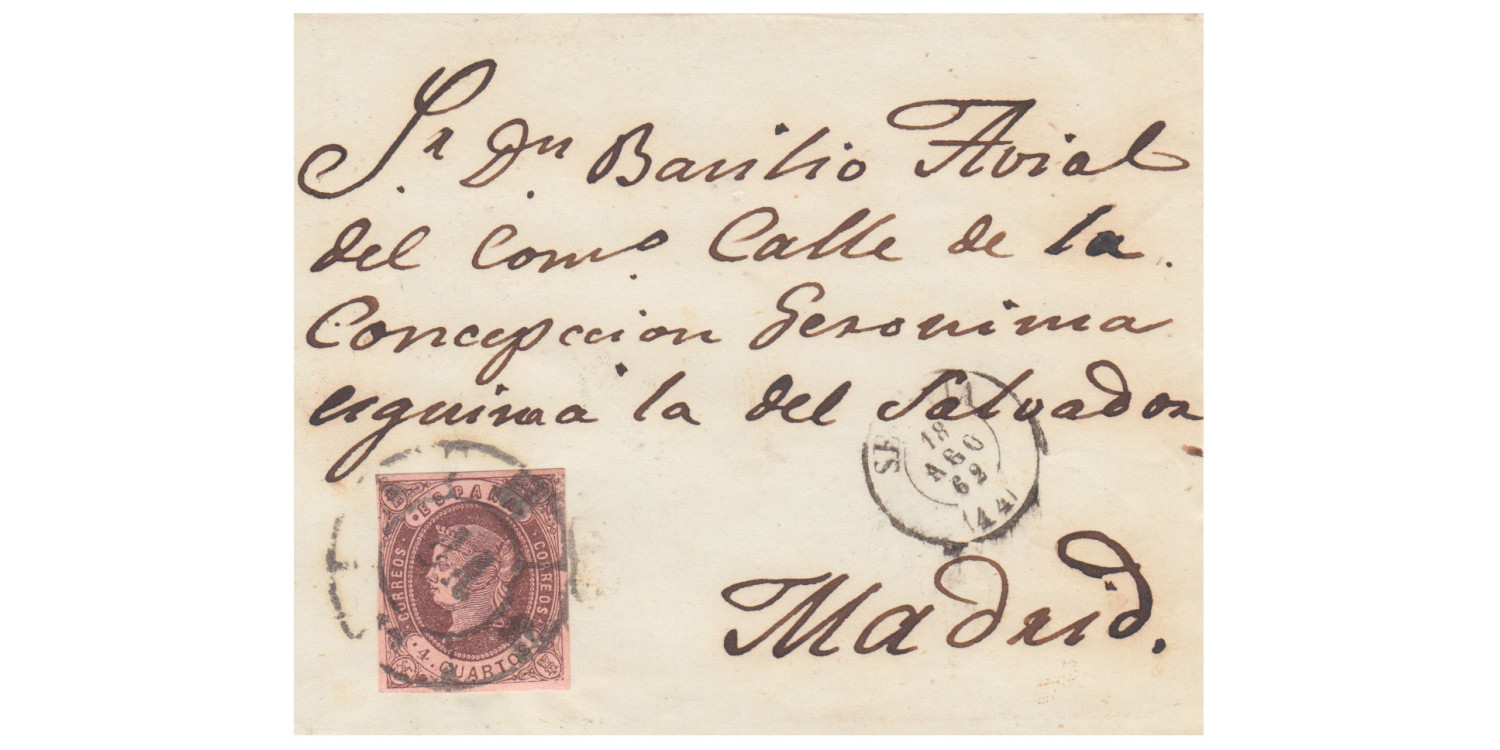 Sr. Dn. Basilio Avial
del Comº. Calle de la
Concepcion Geronima
esquina á la del Salvador
SE 18 AGO 62 (44)
ESPAÑA
CORREOS
CORREOS
4 CUARTOS
Madrid.